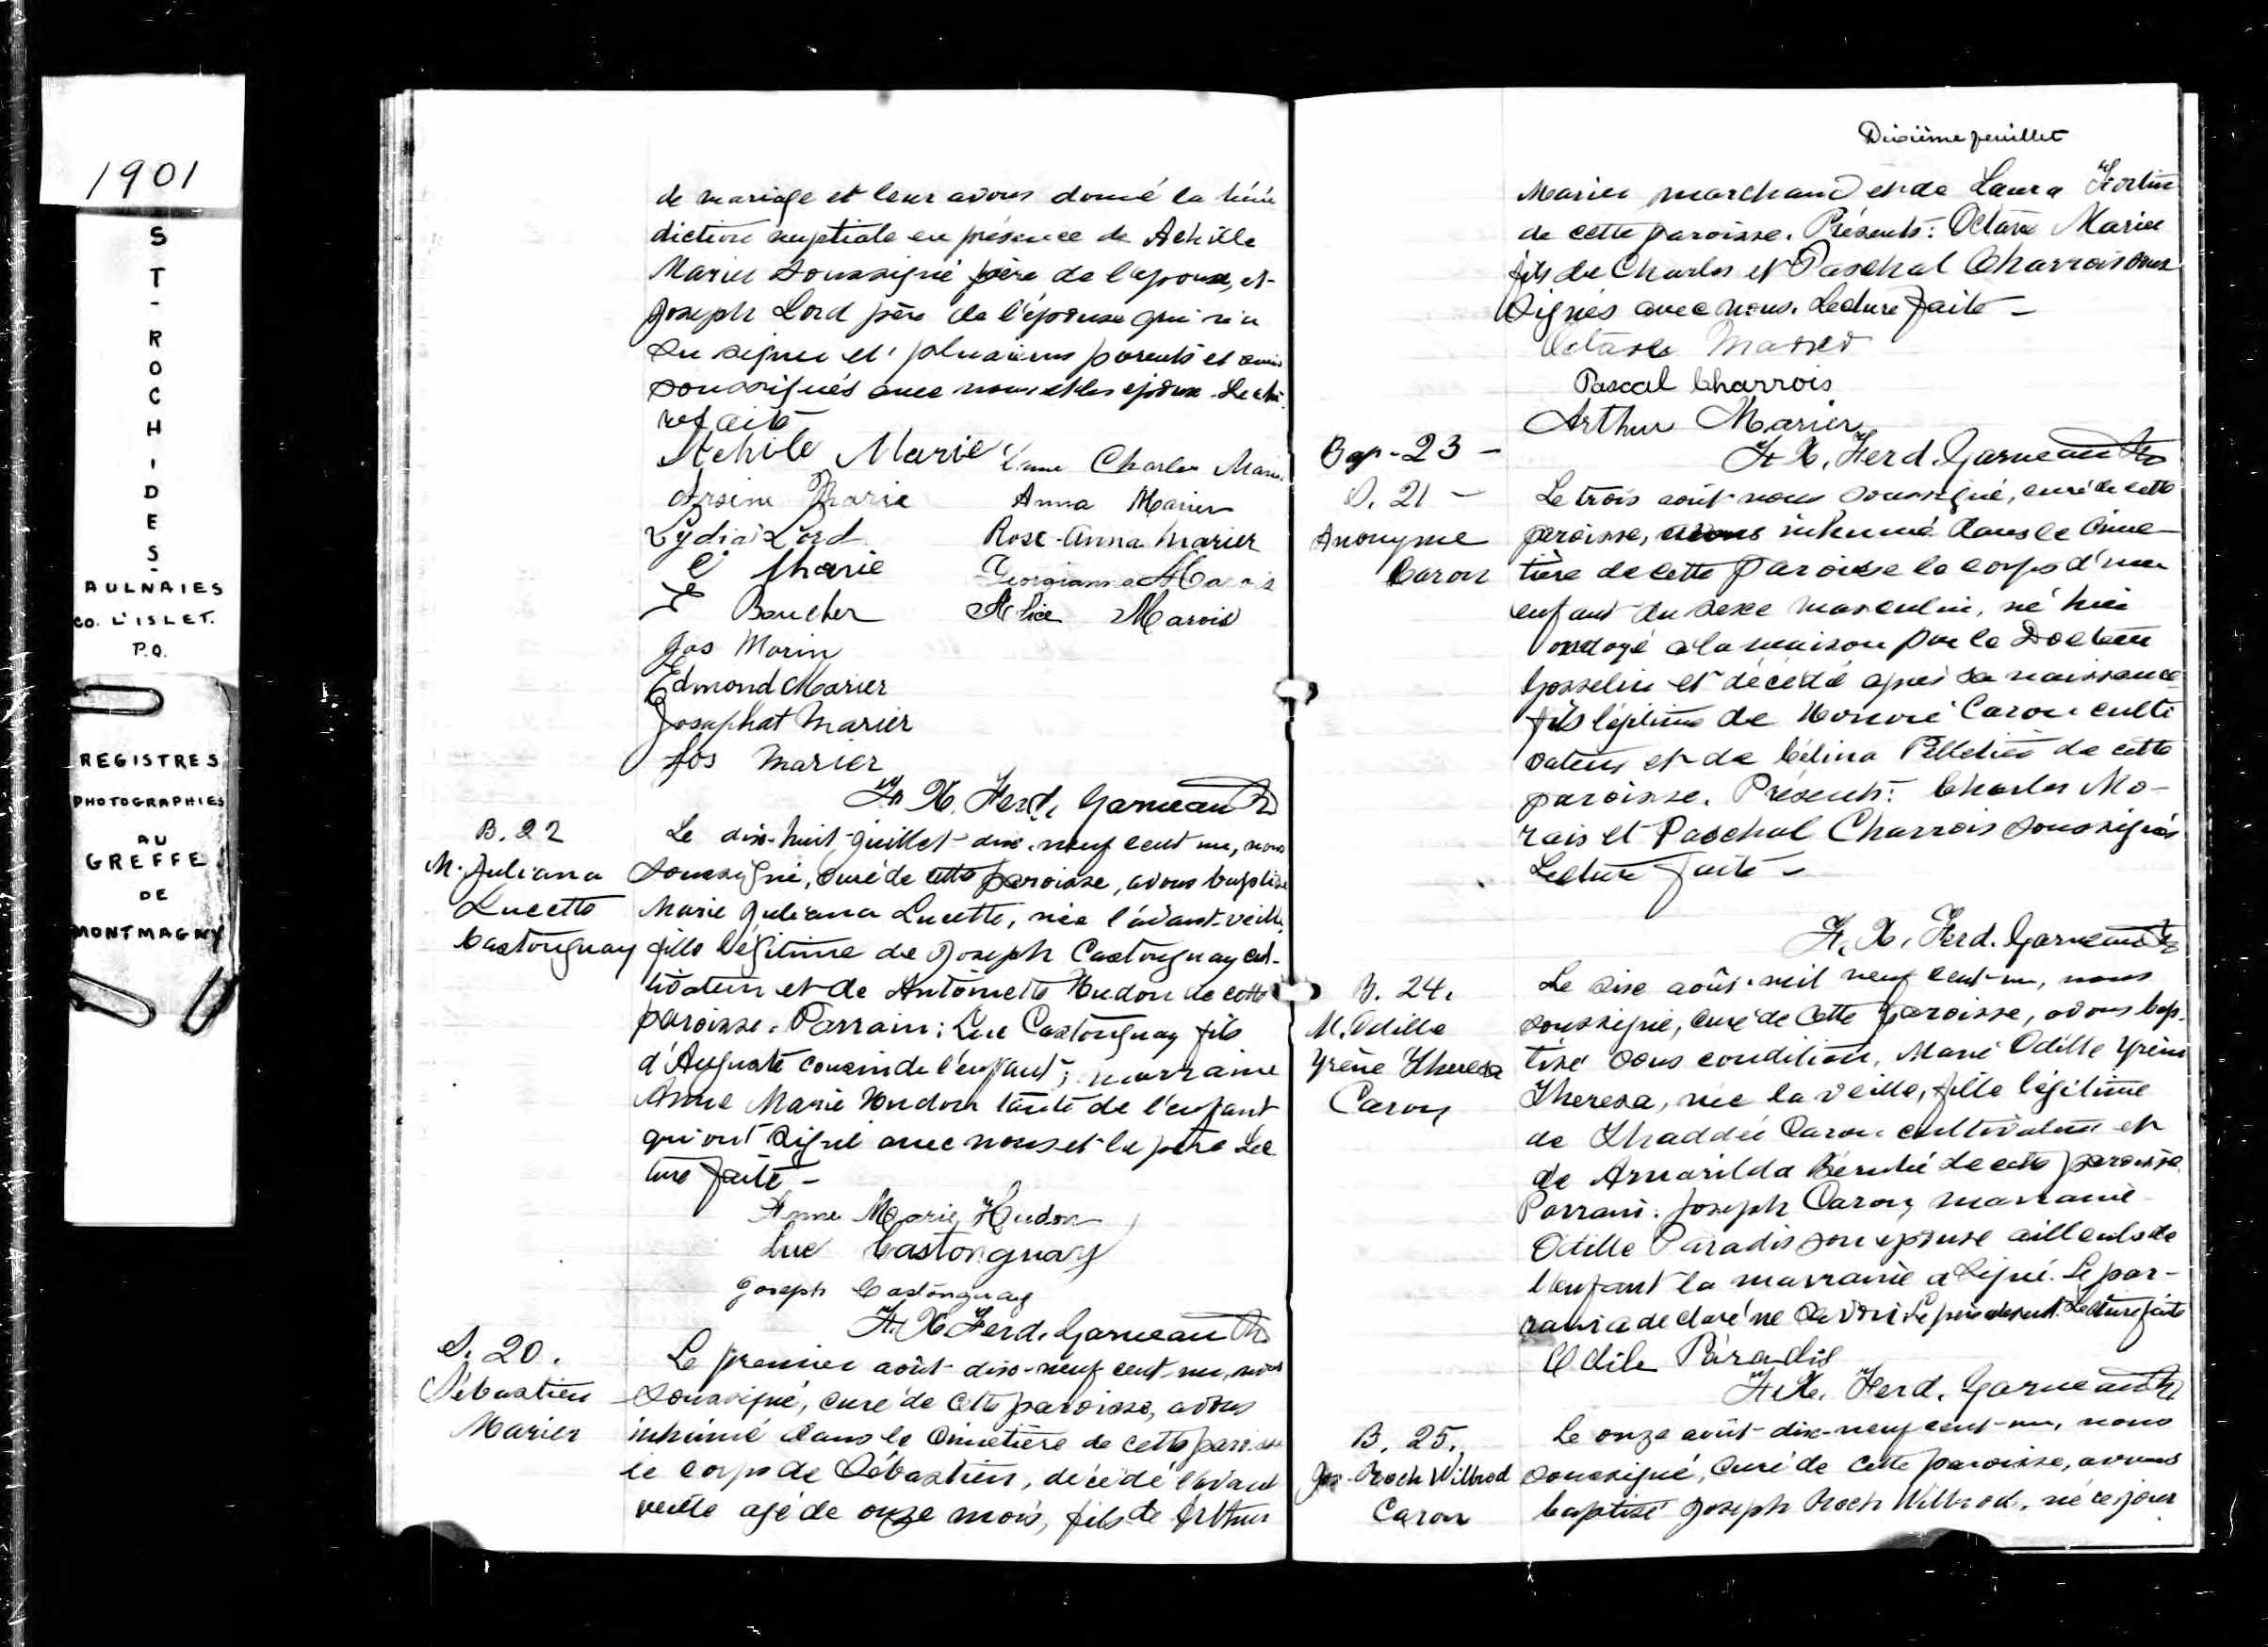 1901
ST-ROCH-DES-
AULNAIES
CO. L'ISLET.
P.Q.
REGISTRES
PHOTOGRAPHIES
AU
GREFFE
DE
MONTMAGNY
de mariage et leur avons donné la béné
diction nuptiale en présence de Achille
Marier soussigné père de l'epoux, et
Joseph Lord père de l'épouse qui n'a
su signer et plusieurs parents et amis
soussignés avec nous et les epoux. Lectu
re faite
Achile Marie Charles
Arsène Marie Anna Marier
Lydia Lord Rose-Anna Marier
Marie Georgianna
Boucher Alice Marois
Jos Morin
Edmond Marier
Josaphat Marier
Jos Marier
F. X. Ferd. Garneau
B. 22
M. Juliana
Lucette
Castonguay
Le dix-huit juillet dix-neuf cent un, nous
soussigné, curé de cette paroisse, avons baptisé
Marie Juliana Lucette, née l'avant-veille,
fille légitime de Joseph Castonguay cul-
tivateur et de Antoinette Hudon de cette
paroisse. Parrain: Luc Castonguay fils
d'Auguste cousin de l'enfant; marraine
Anne Marie Hudon tante de l'enfant
qui ont signé avec nous et le père Lec
ture faite -
Anne Marie Hudon
Luc Castonguay
Joseph Castonguay
F. X. Ferd. Garneau
S. 20.
Sébastien
Marier
Le premier août dix-neuf cent un, nous
soussigné, curé de cette paroisse, avons
inhumé dans le cimetière de cette paroisse
le corps de Sébastien, décédé l'avant
veille agé de onze mois, fils de Arthur
Dixième feuillet
Marier marchand et de Laura Fortin
de cette paroisse. Présents: Octave Marier
fils de Charles et Paschal Charrois sous
signés avec nous. Lecture faite -
Octave
Pascal Charrois
Arthur Marier
F. X. Ferd. Garneau
Bap - 23 -
S. 21 -
Anonyme
Caron
Le trois août nous soussigné, curé de cette
paroisse, avons inhumé dans le cime
tière de cette paroisse le corps d'un
enfant du sexe masculin, né hier
ondoyé a la maison par le Docteur
Gosselin et décédé après sa naissance
fils légitime de Honoré Caron culti
vateur et de Célina Pelletier de cette
paroisse. Présents: Charles Mo-
rais et Paschal Charrois soussignés
Lecture faite -
F. X. Ferd. Garneau
B. 24.
M. Odille
Yrène Theresa
Caron
Le six août mil neuf cent un, nous
soussigné, curé de cette paroisse, avons bap-
tisé sous condition, Marie Odille Yrène
Theresa, née la veille, fille légitime
de Thaddée Caron cultivateur et
de Amarilda Bérubé de cette paroisse.
Parrain: Joseph Caron, marraine
Odille Paradis son epouse ailleuls de
l'enfant la marraine a signé. Le par-
rain a declaré ne savoir. Le père absent. Lecture faite
Odile Paradis
F. X. Ferd. Garneau
B. 25.
Jos-Roch Wilbrod
Caron
Le onze août dix-neuf cent un, nous
soussigné, curé de cette paroisse, avons
baptisé Joseph Roch Wilbrod, né ce jour